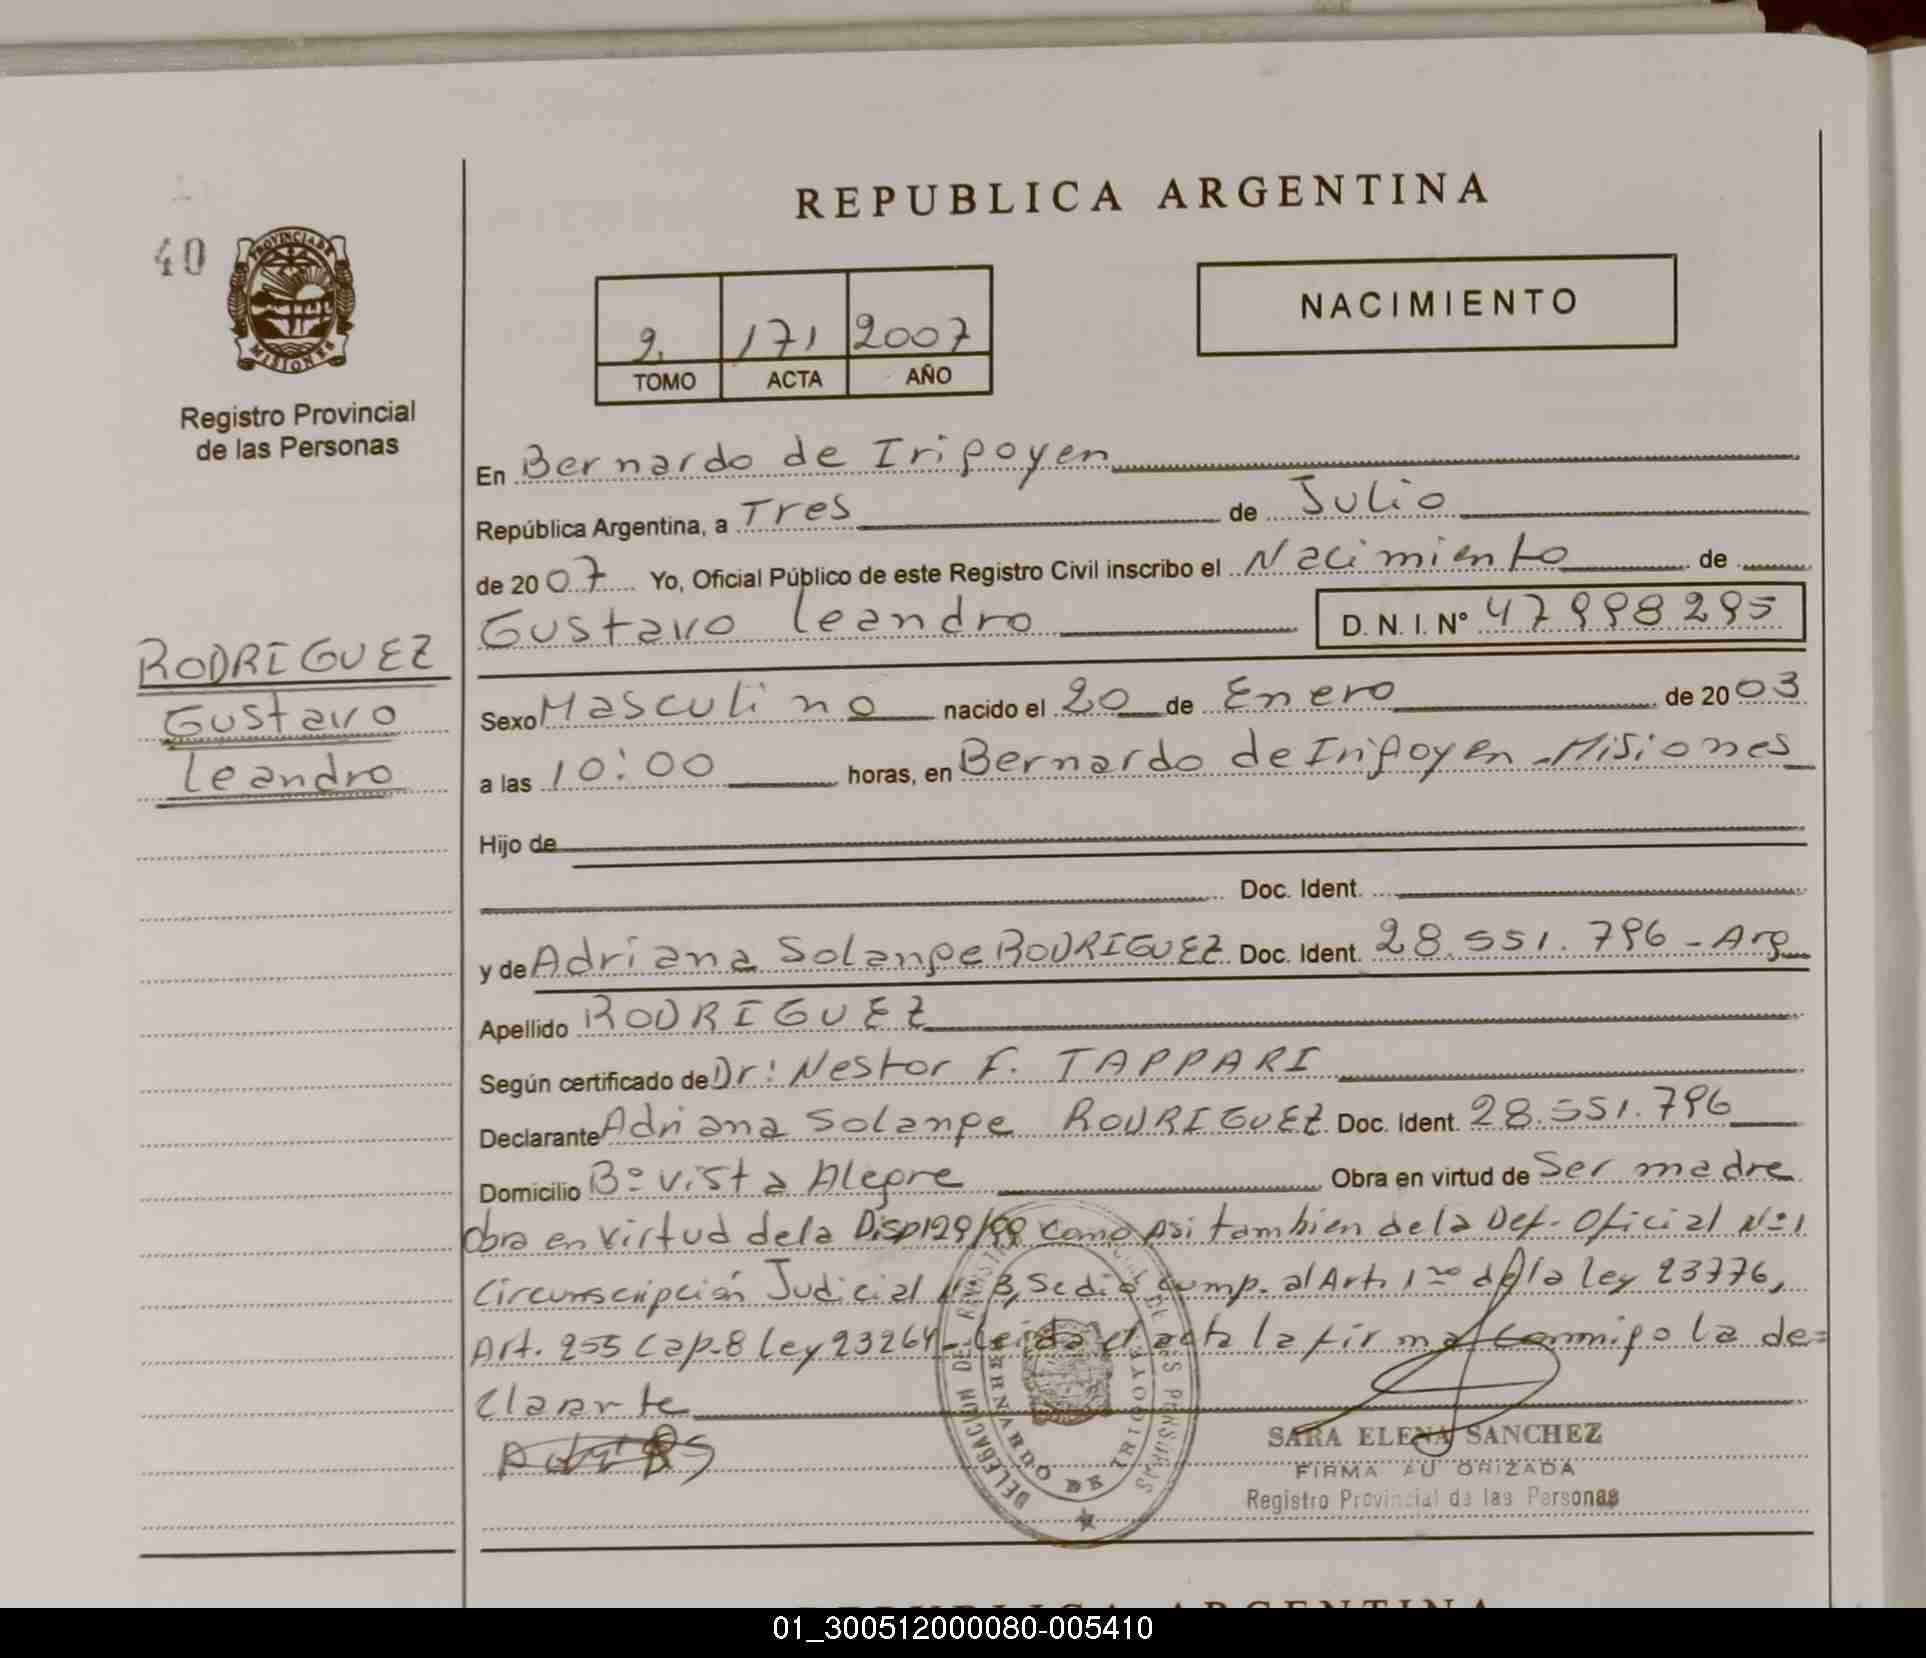 REPUBLICA ARGENTINA
40
PROVINCIA DE
MISIONES
Registro Provincial
de las Personas
NACIMIENTO
2. 171 2007
TOMO ACTA AÑO
En Bernardo de Irigoyen
República Argentina, a Tres de Julio
de 2007 Yo, Oficial Público de este Registro Civil inscribo el Nacimiento de
Gustavo Leandro D. N. I. Nº 47998295
RODRIGUEZ
Gustavo
Leandro
Sexo Masculino nacido el 20 de Enero de 2003
a las 10:00 horas, en Bernardo de Irigoyen - Misiones
Hijo de
Doc. Ident.
y de Adriana Solange RODRIGUEZ Doc. Ident. 28.551.796 - Arg
Apellido RODRIGUEZ
Según certificado de Dr: Nestor F. TAPPARI
Declarante Adriana Solange RODRIGUEZ Doc. Ident. 28.551.796
Domicilio Bº Vista Alegre Obra en virtud de Ser madre
Obra en virtud de la Disp 129/99 como Asi tambien de la Def. Oficial Nº 1
Circunscripción Judicial Nº 3, Se dio cump. al Art. 1ro de la ley 23776,
Art. 255 Cap-8 ley 23264 - Leida el acta la firma conmigo la de=
clarante
DELEGACION DEL REGISTRO PROVINCIAL DE LAS PERSONAS
BERNARDO DE IRIGOYEN
SARA ELENA SANCHEZ
FIRMA AU ORIZADA
Registro Provincial de las Personas
REPUBLICA ARGENTINA
01_300512000080-005410